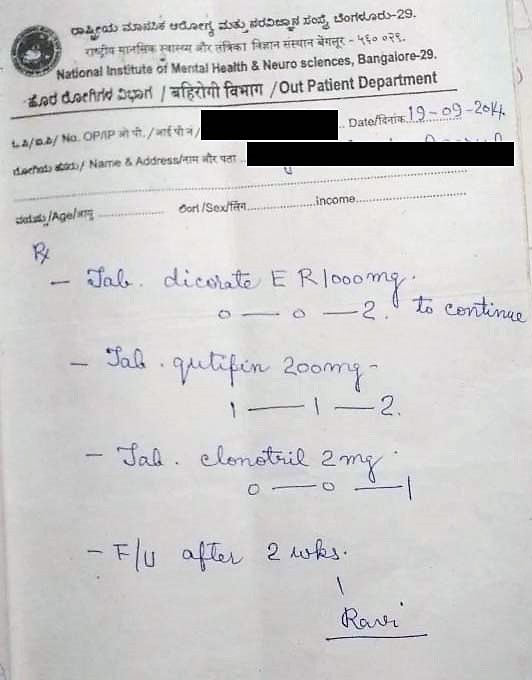 ರಾಷ್ಟ್ರೀಯ ಮಾನಸಿಕ ಆರೋಗ್ಯ ಮತ್ತು ನರವಿಜ್ಞಾನ ಸಂಸ್ಥೆ, ಬೆಂಗಳೂರು-29.
राष्ट्रीय मानसिक स्वास्थ्य और तंत्रिका विज्ञान संस्थान बेंगलूर - ५६० ०२९.
National Institute of Mental Health & Neuro sciences, Bangalore-29.
ಹೊರ ರೋಗಿಗಳ ವಿಭಾಗ / बहिरोगी विभाग / Out Patient Department
No. OP/IP ओ पी. / आई पी नं / Date/दिनांक 19-09-2014
ರೋಗಿಯ ಹೆಸರು/ Name & Address/नाम और पता
ವಯಸ್ಸು/Age/आयु ಲಿಂಗ/Sex/लिंग income
Rx
- Tab. dicorate E R 1000mg.
0 — 0 — 2. to continue
- Tab. qutifin 200mg -
1 — 1 — 2.
- Tab. clonotril 2 mg.
0 — 0 — 1
- F/U after 2 wks.
Ravi